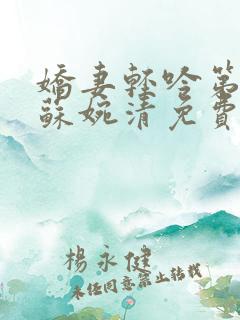 嬌妻輕吟第
蘇婉清免費
楊永健
未经同意禁止转载